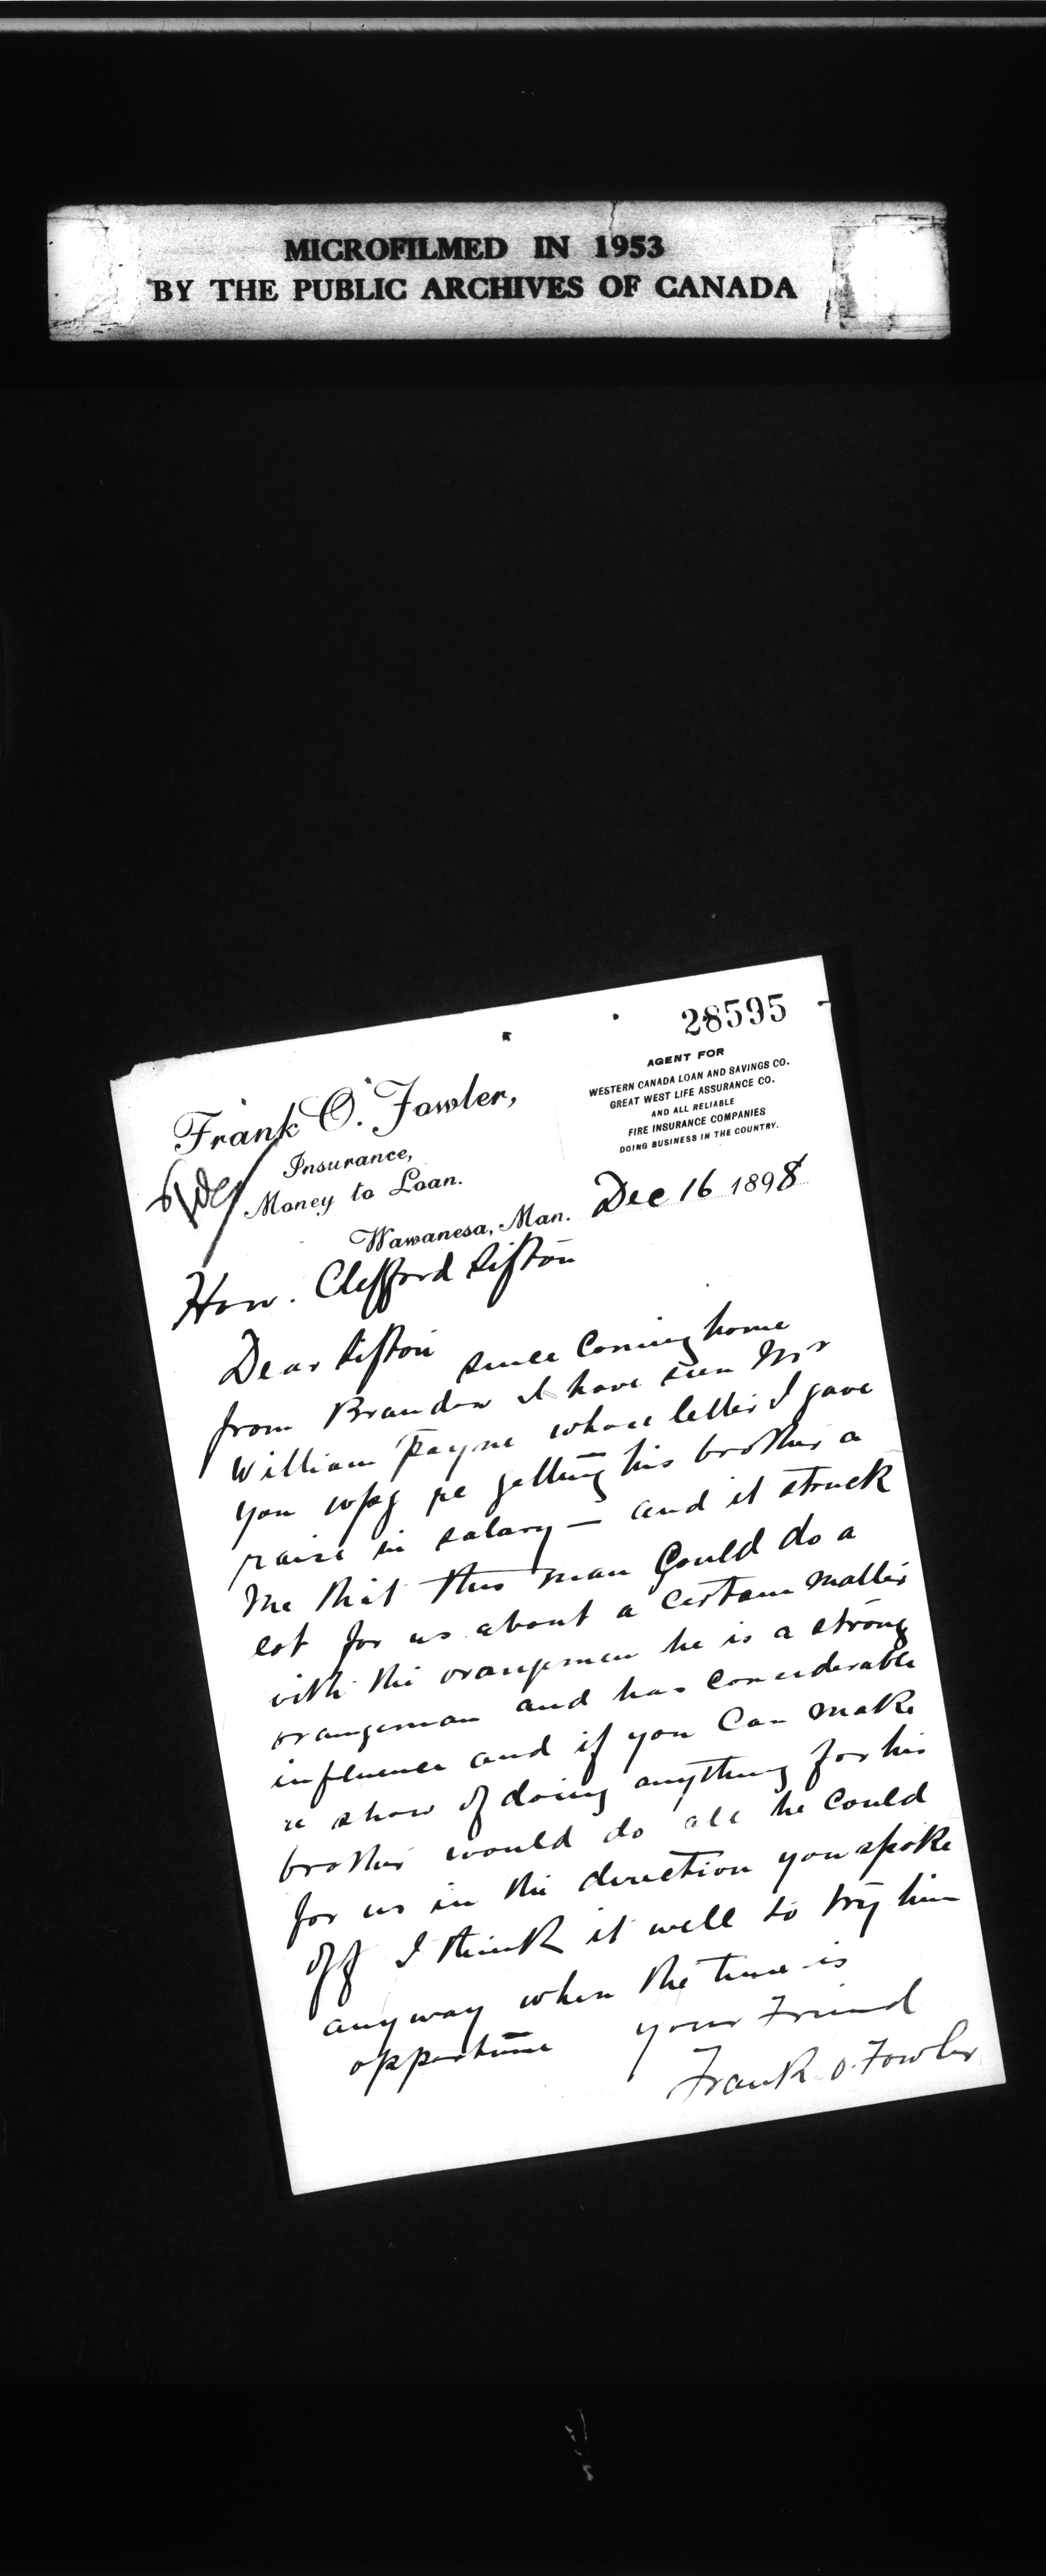 MICROFILMED IN 1953
BY THE PUBLIC ARCHIVES OF CANADA
28595
Frank O. Fowler,
Insurance,
Money to Loan.
AGENT FOR
WESTERN CANADA LOAN AND SAVINGS CO.
GREAT WEST LIFE ASSURANCE CO.
AND ALL RELIABLE
FIRE INSURANCE COMPANIES
DOING BUSINESS IN THE COUNTRY.
Wawanesa, Man. Dec 16 1898
Hon. Clifford Sifton
Dear Sifton
since coming home
from Brandon I have seen Mr
William Payne whose letter I gave
you wpg re getting his brother a
raise in salary — and it struck
me that this man could do a
lot for us about a certain matter
with the orangemen he is a strong
orangeman and has considerable
influence and if you can make
a show of doing anything for his
brother would do all he could
for us in the direction you spoke
off I think it well to try him
anyway when the time is
opportune
your Friend
Frank O. Fowler